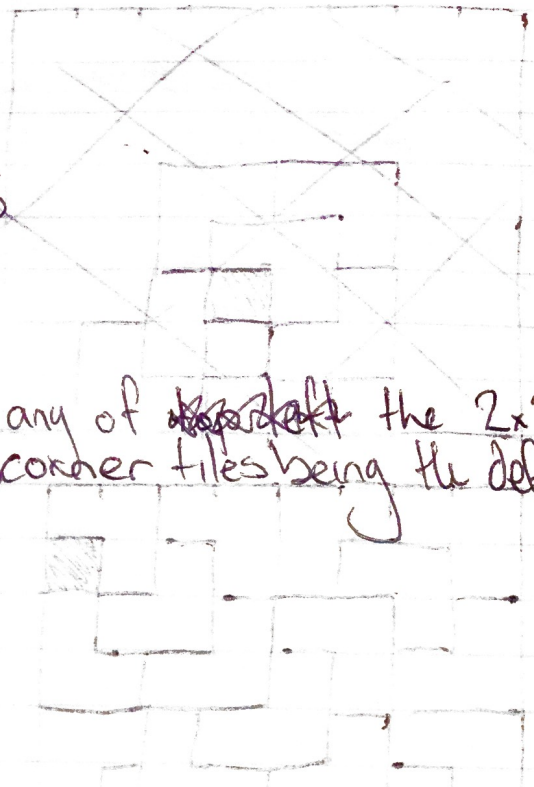 any of the 2x
corner tiles being the def